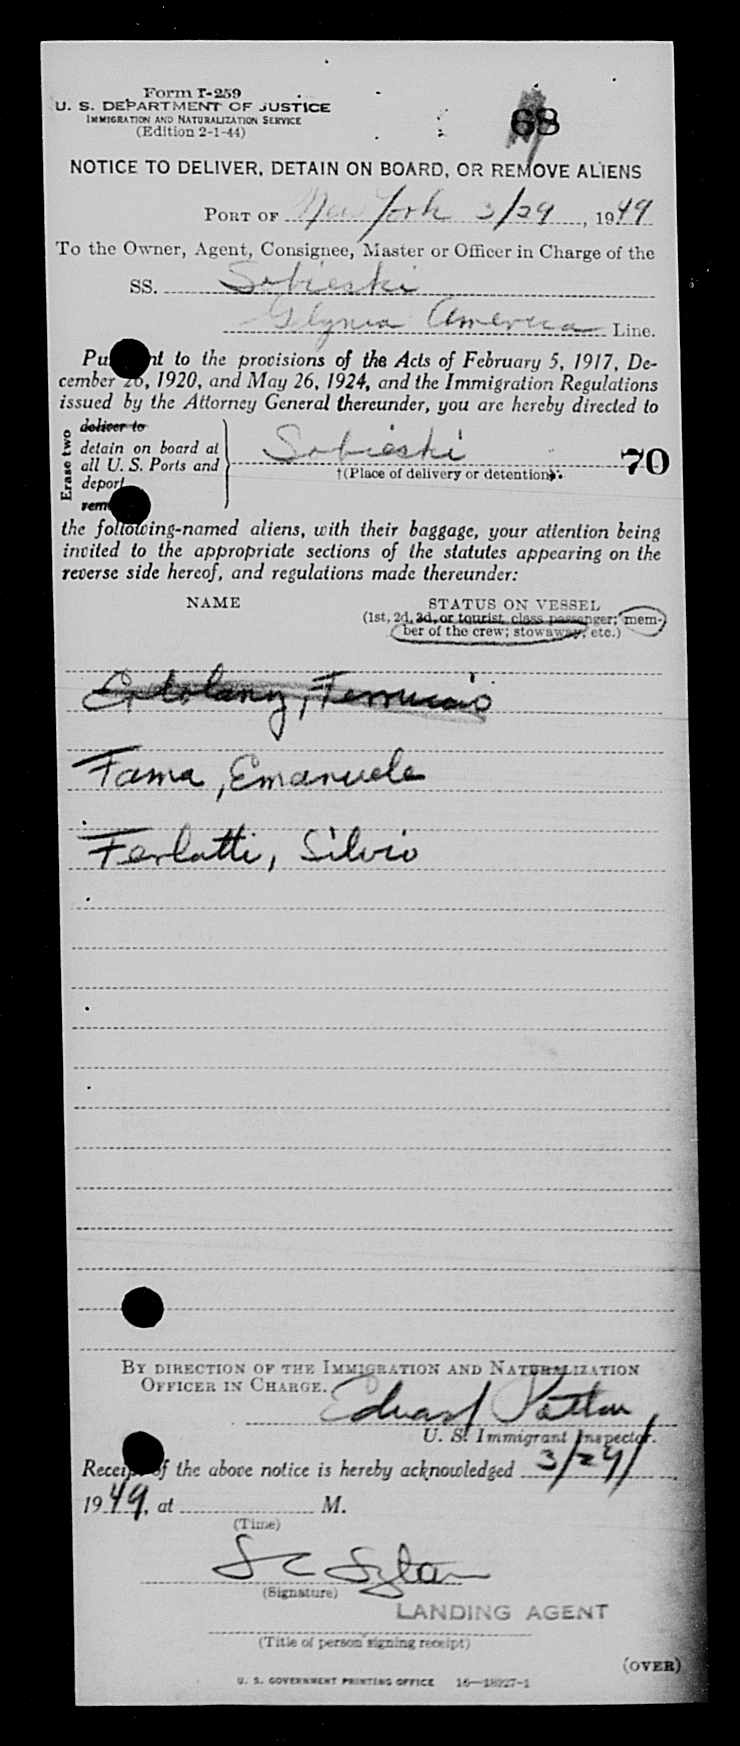 Form I-259
U. S. DEPARTMENT OF JUSTICE
IMMIGRATION AND NATURALIZATION SERVICE
(Edition 2-1-44)
68
NOTICE TO DELIVER, DETAIN ON BOARD, OR REMOVE ALIENS
PORT OF New York 3/29, 1949
To the Owner, Agent, Consignee, Master or Officer in Charge of the
SS. Sobieski
America Line.
to the provisions of the Acts of February 5, 1917, De-
cember 26, 1920, and May 26, 1924, and the Immigration Regulations
issued by the Attorney General thereunder, you are hereby directed to
Erase two
deliver to
detain on board at
all U. S. Ports and
deport
Sobieski
70
†(Place of delivery or detention).
the following-named aliens, with their baggage, your attention being
invited to the appropriate sections of the statutes appearing on the
reverse side hereof, and regulations made thereunder:
NAME STATUS ON VESSEL
(1st, 2d, 3d, or tourist class passenger; mem-
ber of the crew; stowaway, etc.)
Fama, Emanuele
Ferlatti, Silvio
BY DIRECTION OF THE IMMIGRATION AND NATURALIZATION
OFFICER IN CHARGE.
Edward Patton
U. S. Immigrant Inspector.
Receipt of the above notice is hereby acknowledged 3/29/
1949, at M.
(Time)
(Signature)
LANDING AGENT
(Title of person signing receipt)
(OVER)
U. S. GOVERNMENT PRINTING OFFICE 16—18227-1